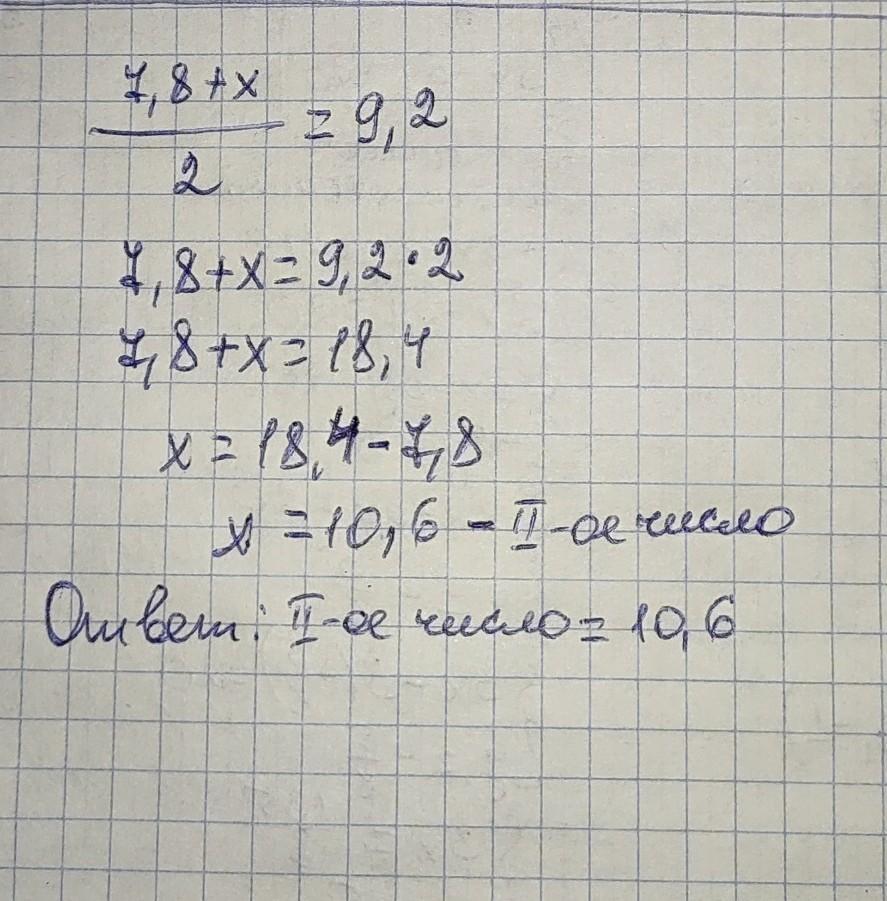 7,8+x
2
= 9,2
7,8+x=9,2·2
7,8+x=18,4
x=18,4-7,8
x=10,6 - II-ое число
Ответ: II-ое число=10,6